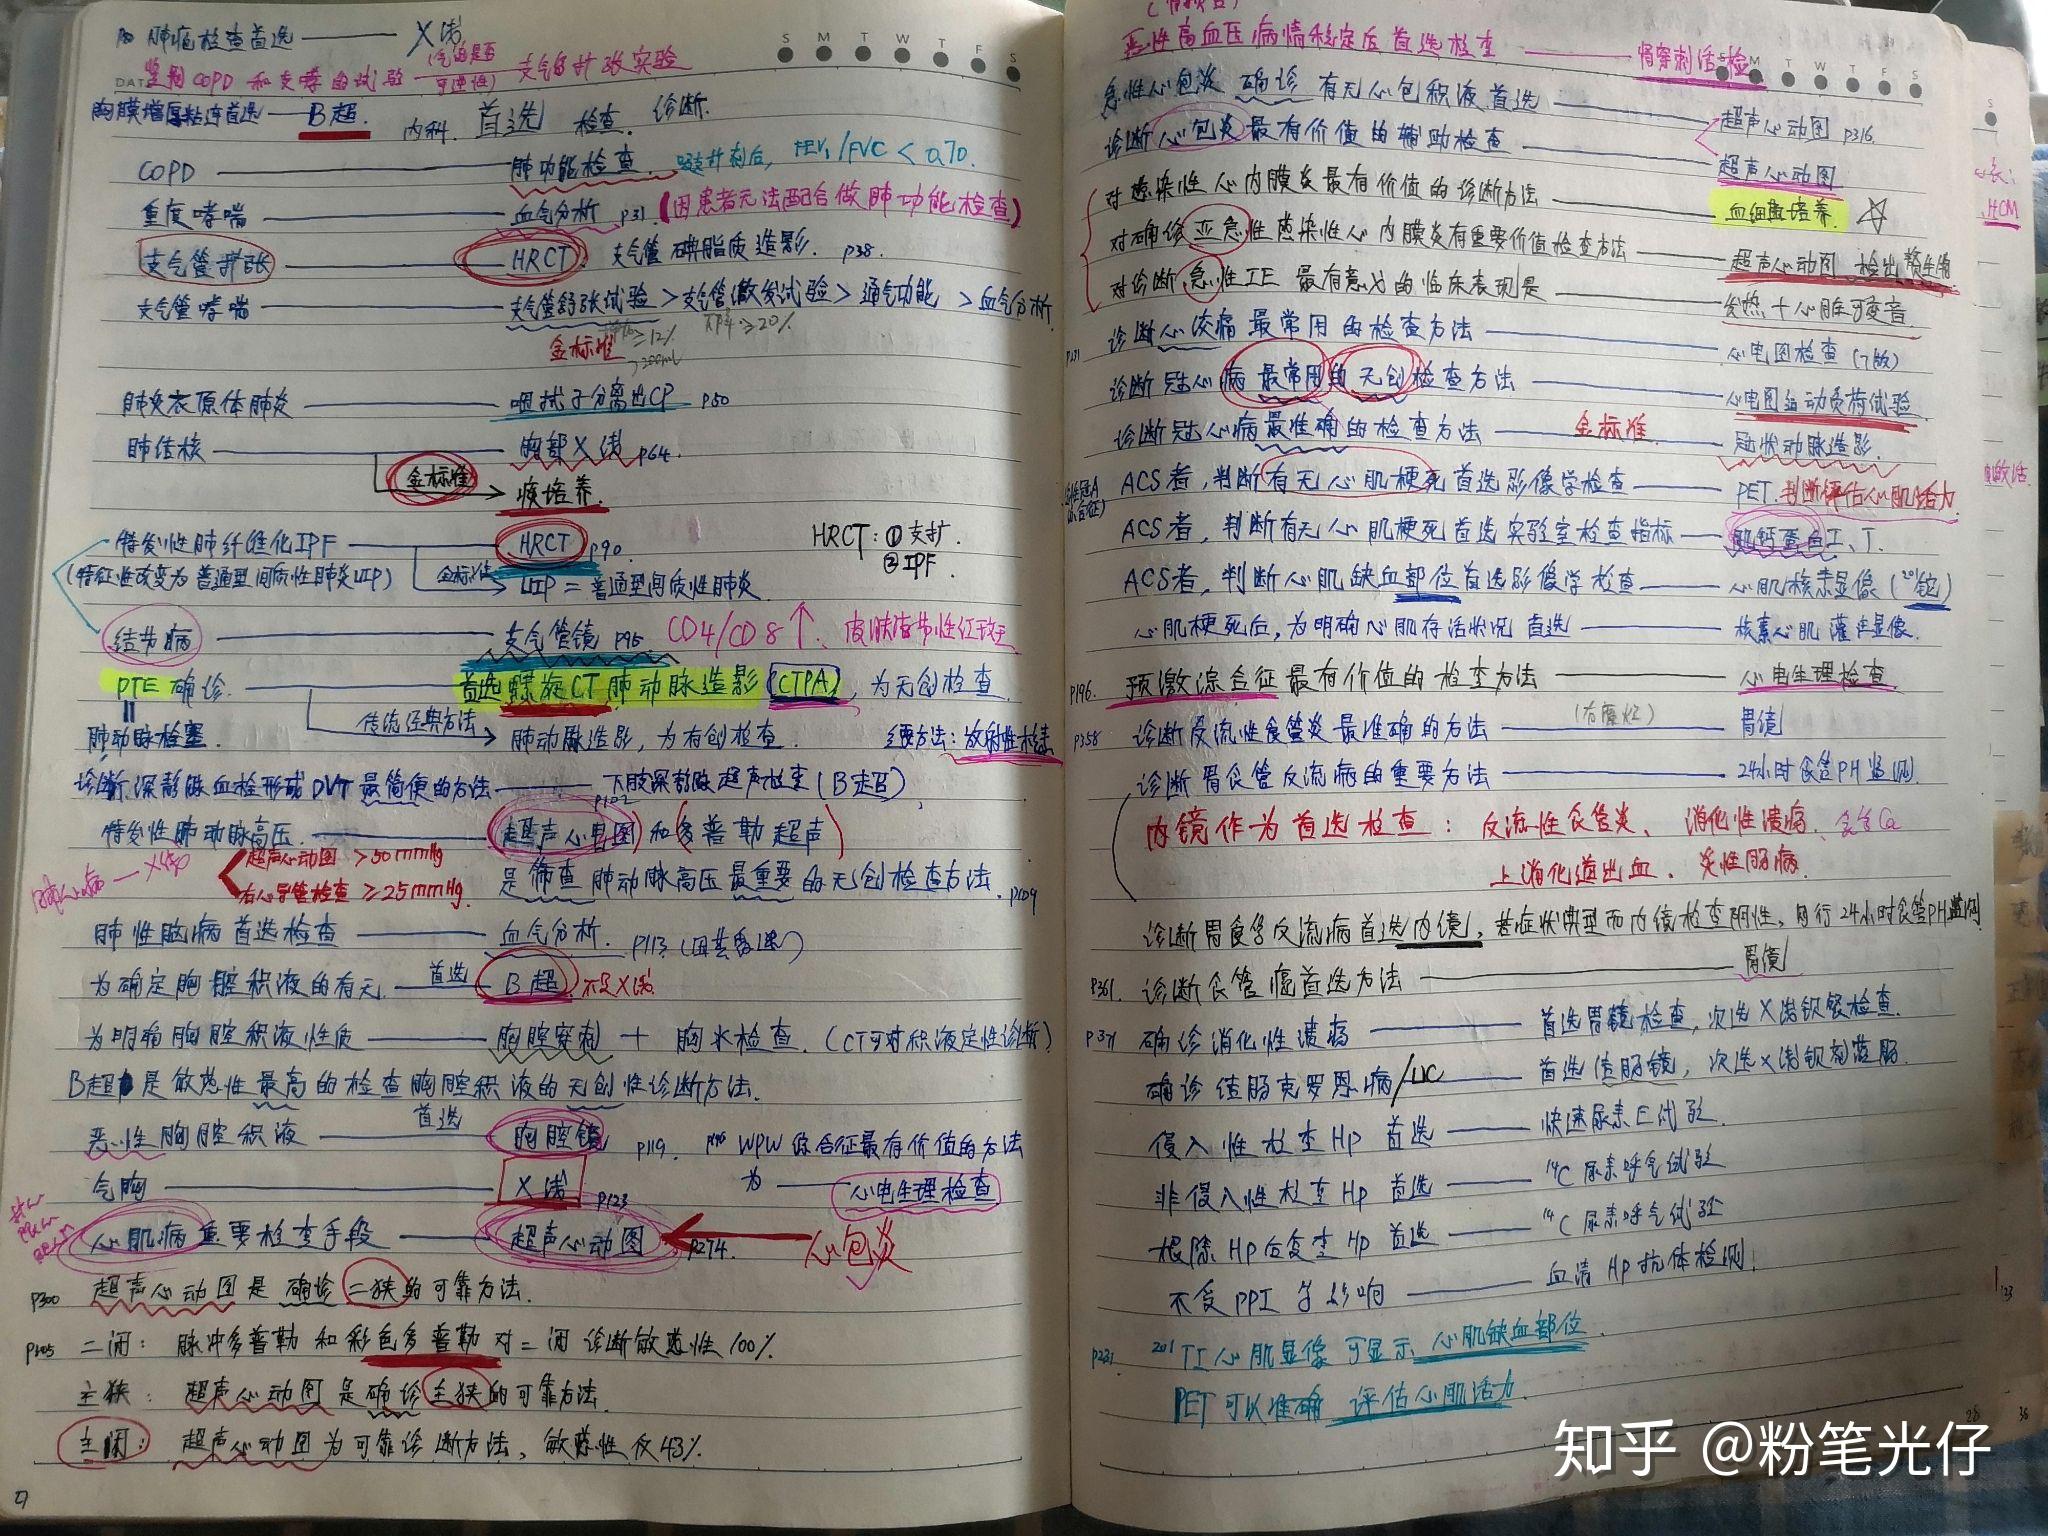 肺癌检查首选 —— X线
鉴别COPD和支哮的试验 —— (气道是否可逆性) 支气管扩张实验
胸膜增厚粘连首选 — B超.
内科. 首选 检查. 诊断.
COPD —— 肺功能检查. 吸支扩剂后, FEV₁/FVC < 0.70.
重度哮喘 —— 血气分析 P31. (因患者无法配合做肺功能检查)
支气管扩张 —— HRCT. 支气管碘脂质造影. P38.
支气管哮喘 —— 支气管舒张试验 > 支气管激发试验 > 通气功能 > 血气分析.
金标准 ≥12% >200ml ≥20%
肺炎衣原体肺炎 —— 咽拭子分离出CP P50
肺结核 —— 胸部X线 P64.
金标准 → 痰培养.
特发性肺纤维化IPF —— HRCT P90 HRCT: ① 支扩. ② IPF.
(特征性改变为普通型间质性肺炎UIP) 金标准 → UIP = 普通型间质性肺炎
结节病 —— 支气管镜 P95 CD4/CD8↑.
PTE确诊. —— 首选螺旋CT肺动脉造影(CTPA), 为无创检查.
肺动脉栓塞. 传统经典方法 → 肺动脉造影, 为有创检查.
诊断深静脉血栓形成DVT最简便的方法 —— 下肢深静脉超声检查(B超).
P102
特发性肺动脉高压. —— (超声心电图)和(多普勒超声)
肺心病 — X线 超声心动图 >50mmHg 是筛查肺动脉高压最重要的无创检查方法. P109
右心导管检查 ≥25mmHg.
肺性脑病首选检查 —— 血气分析. P113
为确定胸腔积液的有无. —首选— B超. 不是X线
为明确胸腔积液性质 —— 胸腔穿刺 + 胸水检查. (CT可对积液定性诊断)
B超是敏感性最高的检查胸腔积液的无创性诊断方法.
恶性胸腔积液 —首选— 胸腔镜 P119. P196 WPW综合征最有价值的方法
气胸 —— X线 P123 为 —— 心电生理检查
心肌病重要检查手段 —— 超声心动图 P274. ← 心包炎
P300 超声心动图是确诊二狭的可靠方法.
P305 二闭: 脉冲多普勒和彩色多普勒对二闭诊断敏感性100%.
主狭: 超声心动图是确诊主狭的可靠方法.
主闭: 超声心动图为可靠诊断方法, 敏感性仅43%.
恶性高血压病情稳定后首选检查 —— 肾穿刺活检
急性心包炎确诊有无心包积液首选 —— 超声心动图 P316.
诊断心包炎最有价值的辅助检查 —— 超声心动图
对感染性心内膜炎最有价值的诊断方法 —— 血细菌培养. ☆
对确诊亚急性感染性心内膜炎有重要价值检查方法 —— 超声心动图 检出赘生物
对诊断急性IE最有意义的临床表现是 —— 发热+心脏可变音.
P231 诊断心绞痛最常用的检查方法 —— 心电图检查(7版)
诊断冠心病最常用的无创检查方法 —— 心电图运动负荷试验.
诊断冠心病最准确的检查方法 —— 金标准. 冠状动脉造影.
ACS者, 判断有无心肌梗死首选影像学检查 —— PET. 判断评估心肌活力
ACS者, 判断有无心肌梗死首选实验室检查指标 —— 肌钙蛋白I、T.
ACS者, 判断心肌缺血部位首选影像学检查 —— 心肌核素显像(²⁰¹铊)
心肌梗死后, 为明确心肌存活状况首选 —— 核素心肌灌注显像.
P196. 预激综合征最有价值的检查方法 —— 心电生理检查.
P358 诊断反流性食管炎最准确的方法 —— 胃镜
诊断胃食管反流病的重要方法 —— 24小时食管PH监测.
内镜作为首选检查: 反流性食管炎、消化性溃疡、食管Ca
上消化道出血、炎性肠病.
诊断胃食管反流病首选内镜, 若症状典型而内镜检查阴性, 可行24小时食管PH监测
P361. 诊断食管癌首选方法 —— 胃镜
P371 确诊消化性溃疡 —— 首选胃镜检查, 次选X线钡餐检查.
确诊结肠克罗恩病/UC —— 首选结肠镜, 次选X线钡剂灌肠.
侵入性检查Hp首选 —— 快速尿素E试验.
非侵入性检查Hp首选 —— ¹⁴C尿素呼气试验
根除Hp后复查Hp首选 —— ¹⁴C尿素呼气试验
不受PPI等影响 —— 血清Hp抗体检测!
P231 201TI心肌显像可显示心肌缺血部位.
PET可以准确评估心肌活力.
知乎 @粉笔光仔